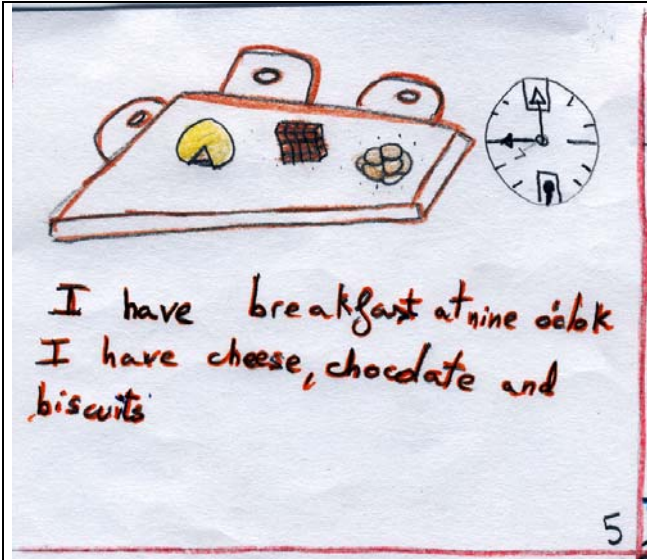 I have breakfast at nine óclok
I have cheese, chocolate and
biscuits
5